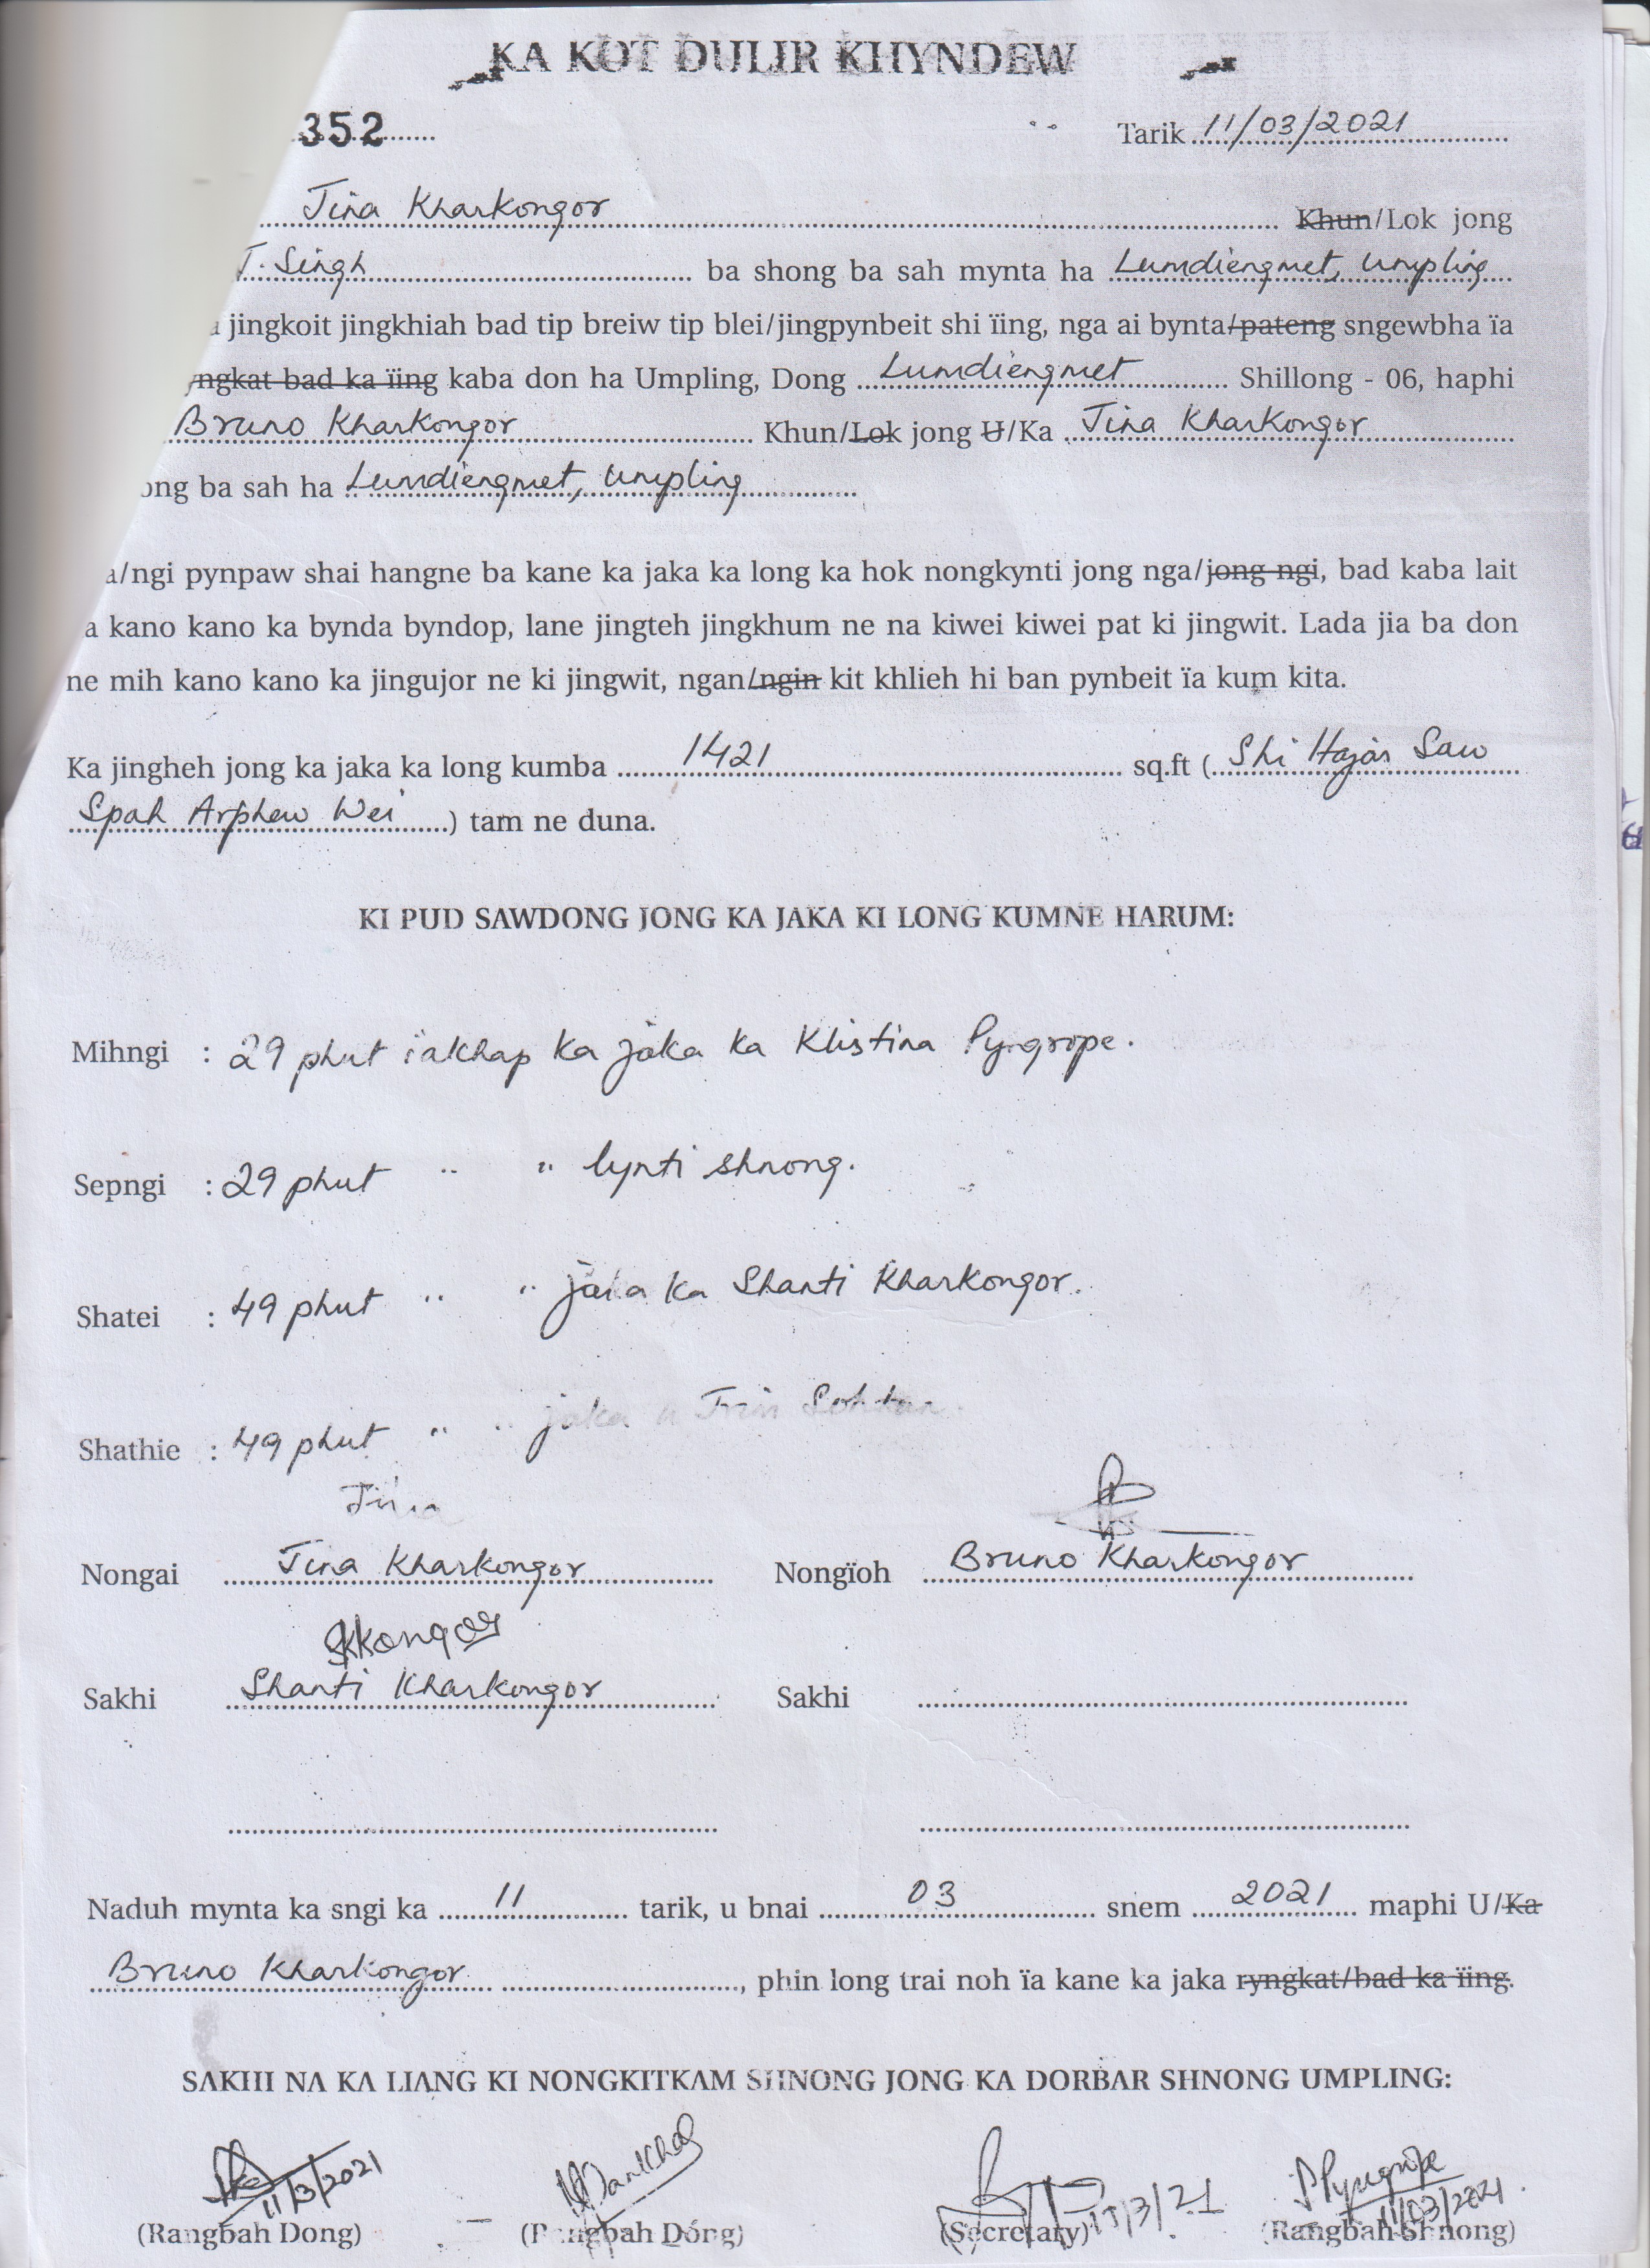 KA KOT DULIR KHYNDEW
352 Tarik 11/03/2021
Tina Kharkongor Khun/Lok jong
T. Singh ba shong ba sah mynta ha Lumdiengmet, Umpling
jingkoit jingkhiah bad tip breiw tip blei/jingpynbeit shi ïing, nga ai bynta/pateng sngewbha ïa
yngkat bad ka ïing kaba don ha Umpling, Dong Lumdiengmet Shillong - 06, haphi
Bruno Kharkongor Khun/Lok jong U/Ka Tina Kharkongor
ong ba sah ha Lumdiengmet, Umpling
a/ngi pynpaw shai hangne ba kane ka jaka ka long ka hok nongkynti jong nga/jong ngi, bad kaba lait
a kano kano ka bynda byndop, lane jingteh jingkhum ne na kiwei kiwei pat ki jingwit. Lada jia ba don
ne mih kano kano ka jingujor ne ki jingwit, ngan/ngin kit khlieh hi ban pynbeit ïa kum kita.
Ka jingheh jong ka jaka ka long kumba 1421 sq.ft (Shi Hajar Saw
Spah Arphew Wei) tam ne duna.
KI PUD SAWDONG JONG KA JAKA KI LONG KUMNE HARUM:
Mihngi : 29 phut ïakhap ka jaka ka Klistina Pyngrope.
Sepngi : 29 phut " " lynti shnong.
Shatei : 49 phut " " jaka ka Shanti Kharkongor.
Shathie : 49 phut " " jaka u
Tina
Nongai Tina Kharkongor Nongïoh Bruno Kharkongor
SKkongor
Sakhi Shanti Kharkongor Sakhi
Naduh mynta ka sngi ka 11 tarik, u bnai 03 snem 2021 maphi U/Ka
Bruno Kharkongor, phin long trai noh ïa kane ka jaka ryngkat/bad ka ïing.
SAKHI NA KA LIANG KI NONGKITKAM SHNONG JONG KA DORBAR SHNONG UMPLING:
11/3/2021 /3/21 SPyngrope 11/03/2021
(Rangbah Dong) (Rangbah Dóng) (Secretary) (Rangbah Shnong)